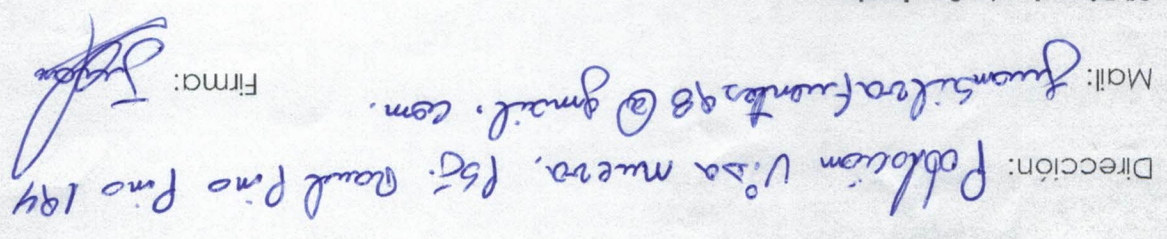 Dirección: Poblacion Vida nueva, Psj. Raul Pino Pino 194
Mail: Juansilvafuentes98@gmail.com. Firma: